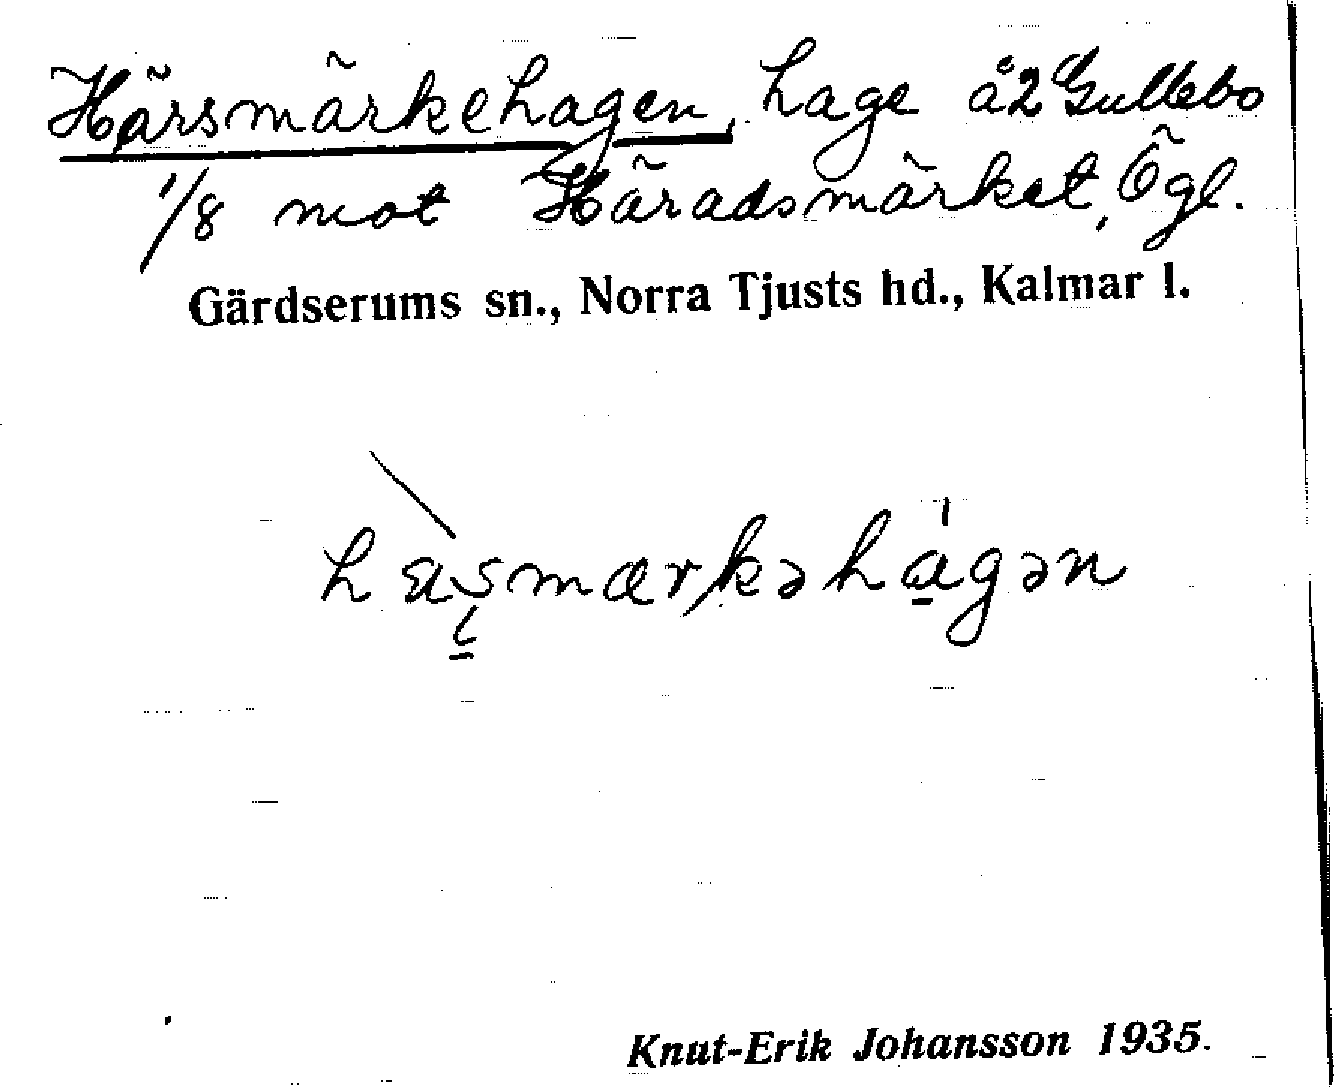 Härsmärkehagen, hage å 2 Gullebo
1/8 mot Häradsmärket, Ögl.
Gärdserums sn., Norra Tjusts hd., Kalmar l.
Knut-Erik Johansson 1935.